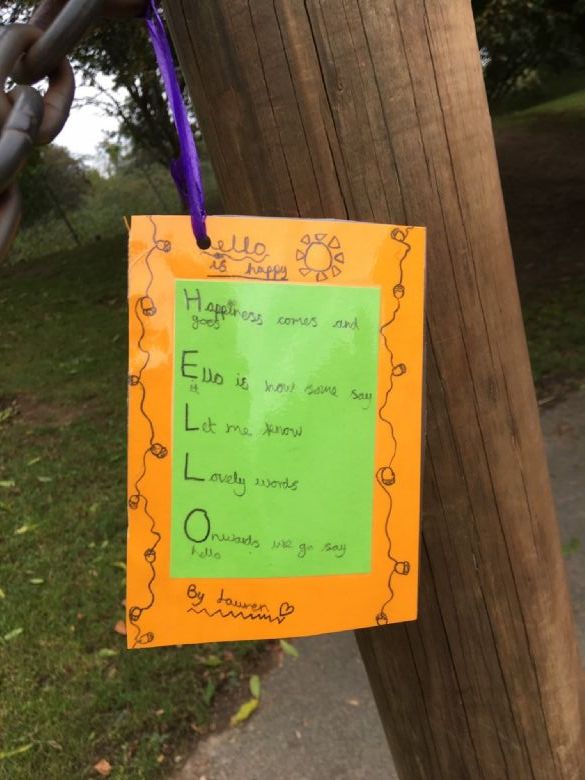 ello
is happy
Happiness comes and
goes
Ello is how some say
it
Let me know
Lovely words
Onwards we go say
hello
By Lauren